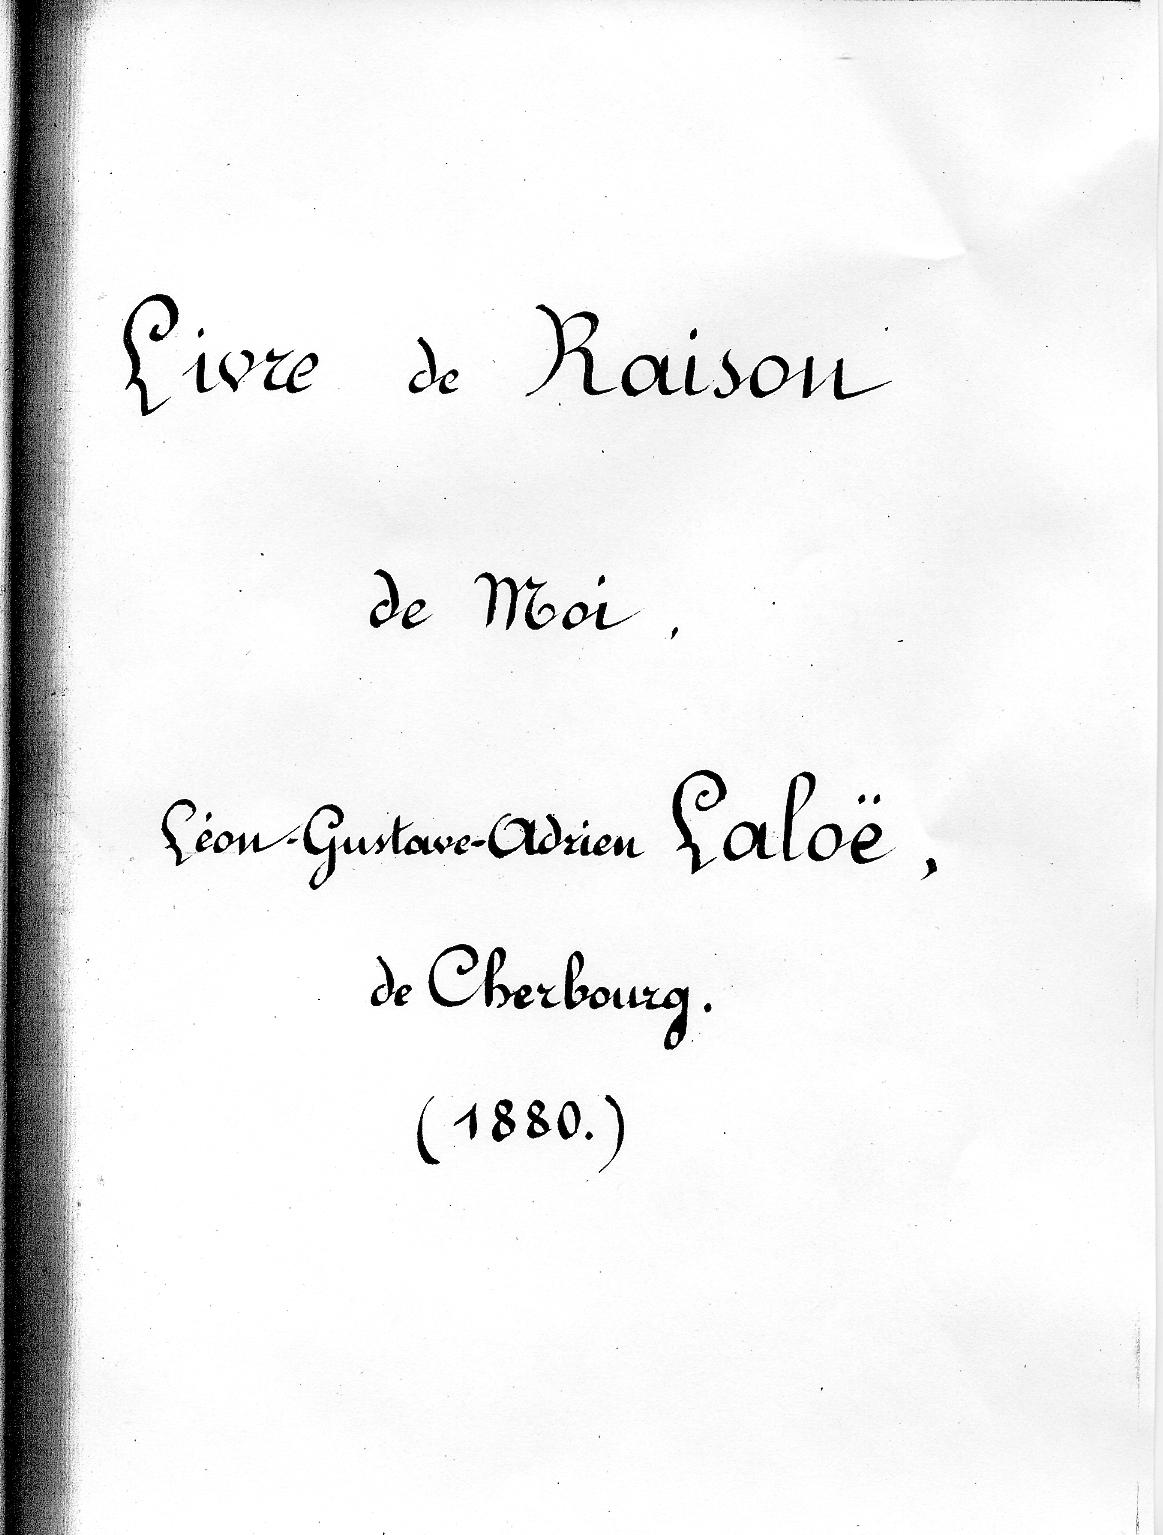 Livre de Raison
de Moi,
Léon-Gustave-Adrien Laloë,
de Cherbourg.
(1880.)